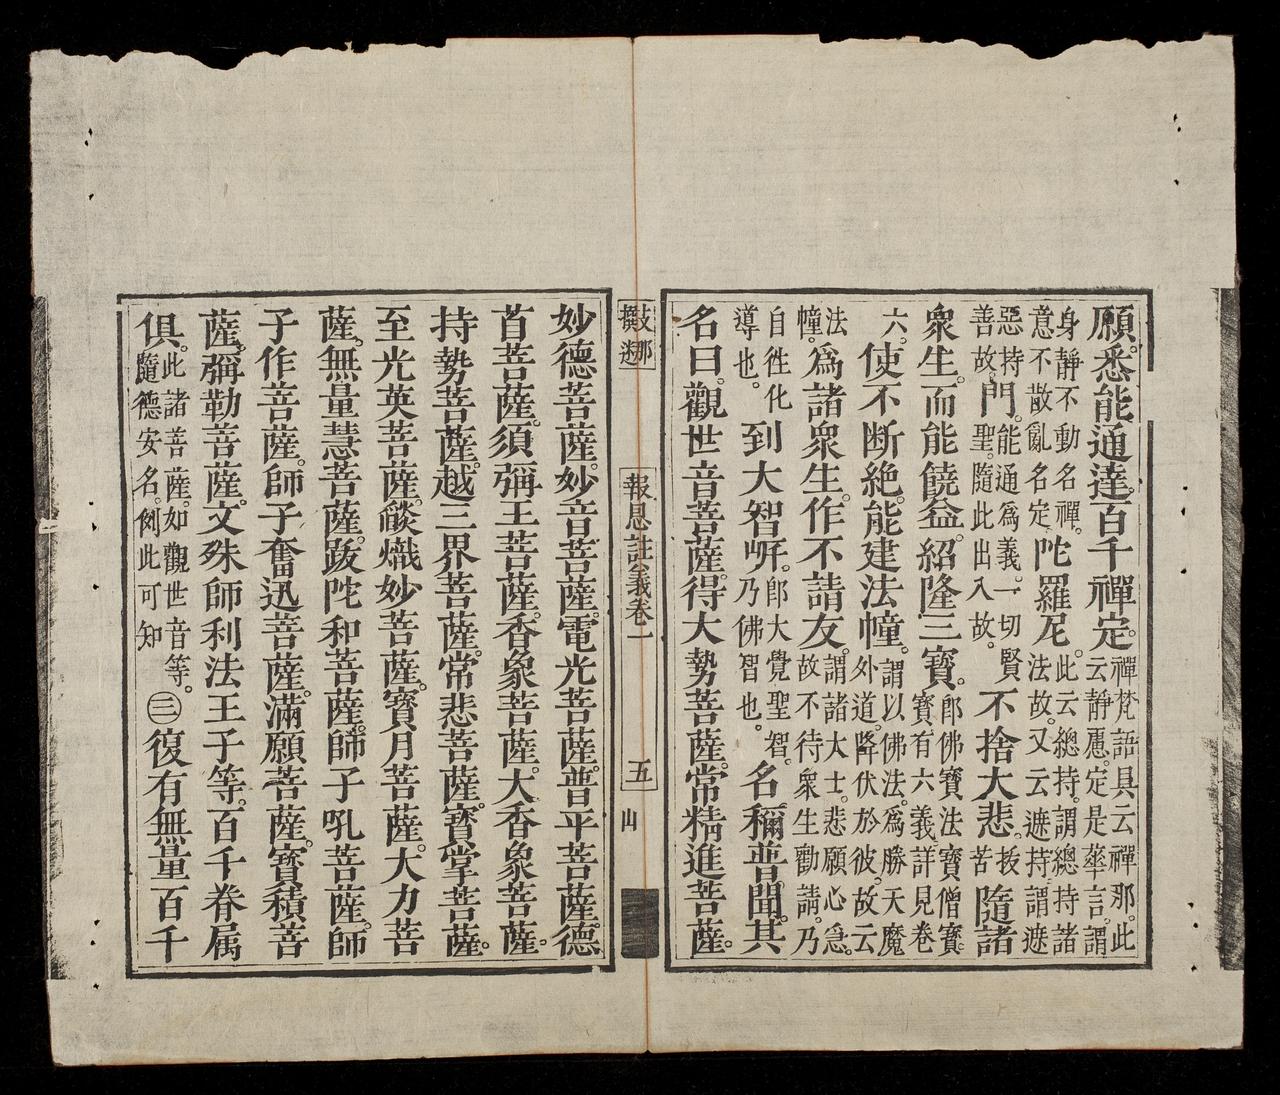 願。悉能通達。百千禪定。禪梵語具云禪那。此云靜慮。定是華言。謂
身靜不動名禪。意不散亂名定。陀羅尼。此云總持。謂總持諸法故。又云遮持。謂遮
惡持善故。門。能通爲義。一切賢聖。隨此出入故。不捨大悲。拔苦隨諸
衆生。而能饒益。紹隆三寶。卽佛寶法寶僧寶。寶有六義詳見卷
六。使不断絶。能建法幢。謂以佛法。爲勝天魔外道。降伏於彼。故云
法幢。爲諸衆生。作不請友。謂諸大士。悲願心急。故不待衆生勸請。乃
自徃化導也。到大智岸。卽大覺聖智。乃佛智也。名稱普聞。其
名曰。觀世音菩薩。得大勢菩薩。常精進菩薩。
支那撰述
報恩註義卷一
五
山
妙德菩薩。妙音菩薩。電光菩薩。普平菩薩。德
首菩薩。須彌王菩薩。香象菩薩。大香象菩薩。
持勢菩薩。越三界菩薩。常悲菩薩。寶掌菩薩。
至光英菩薩。燄熾妙菩薩。寶月菩薩。大力菩
薩。無量慧菩薩。跋陀和菩薩。師子吼菩薩。師
子作菩薩。師子奮迅菩薩。滿願菩薩。寶積菩
薩。彌勒菩薩。文殊師利法王子等。百千眷属
俱。此諸菩薩。如觀世音等。隨德安名。例此可知㊂復有無量百千